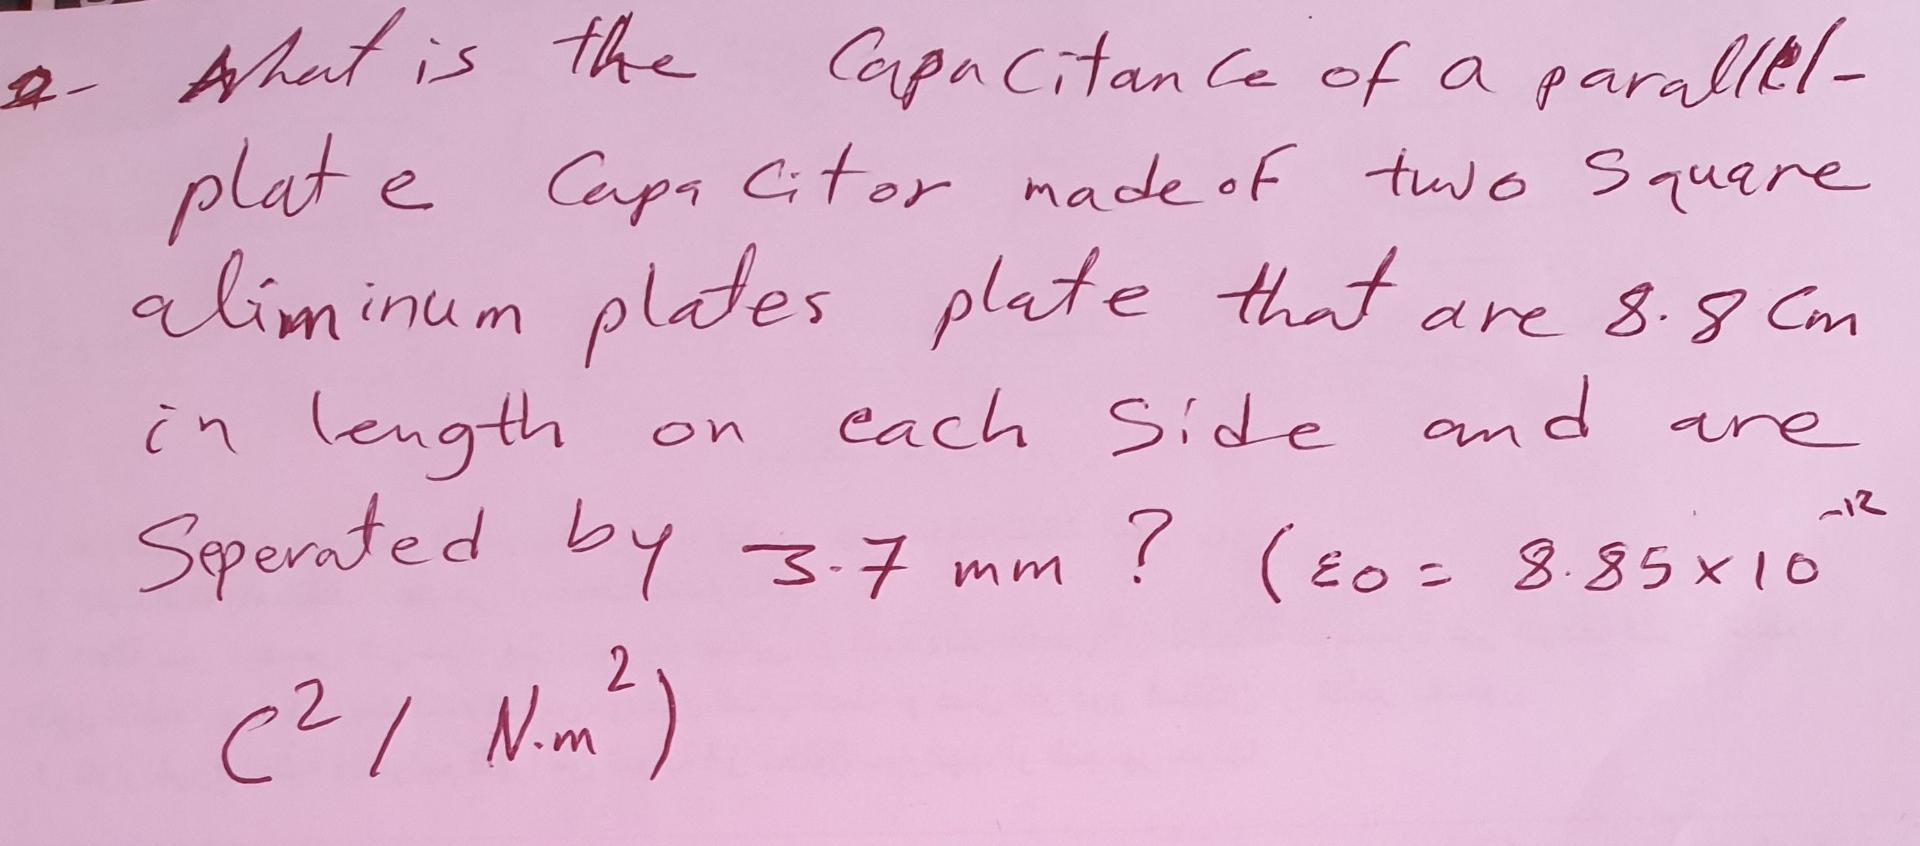 Q- What is the Capacitance of a parallel-
plate Capacitor made of two Square
aliminum plates plate that are 8.8 Cm
in length on each Side and are
Seperated by 3.7 mm ? (ε0 = 8.85 x 10⁻¹²
C² / N.m²)